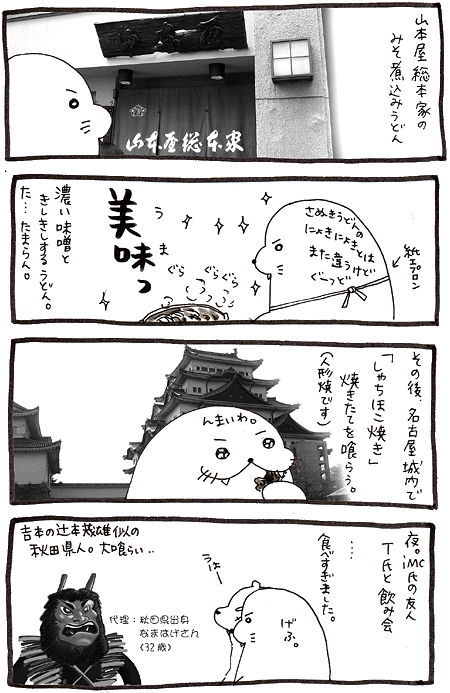 山本屋総本家の
みそ煮込みうどん
山本屋
山本屋総本家
さぬきうどんの
にょきにょきとは
また違うけど
ぐーっど
紙エプロン
美味っ
うま
ぐら
ぐらぐら
濃い味噌と
きしきしするうどん。
た…たまらん。
その後、名古屋城内で
「しゃちほこ焼き」
焼きたてを喰らう。
(人形焼です)
んまいわ。
夜。iMC氏の友人
T氏と飲み会
‥‥
食べすぎました。
げふ。
うぷー
吉本の辻本茂雄似の
秋田県人。大喰らい‥
代理:秋田県出身
なまはげさん
(32歳)